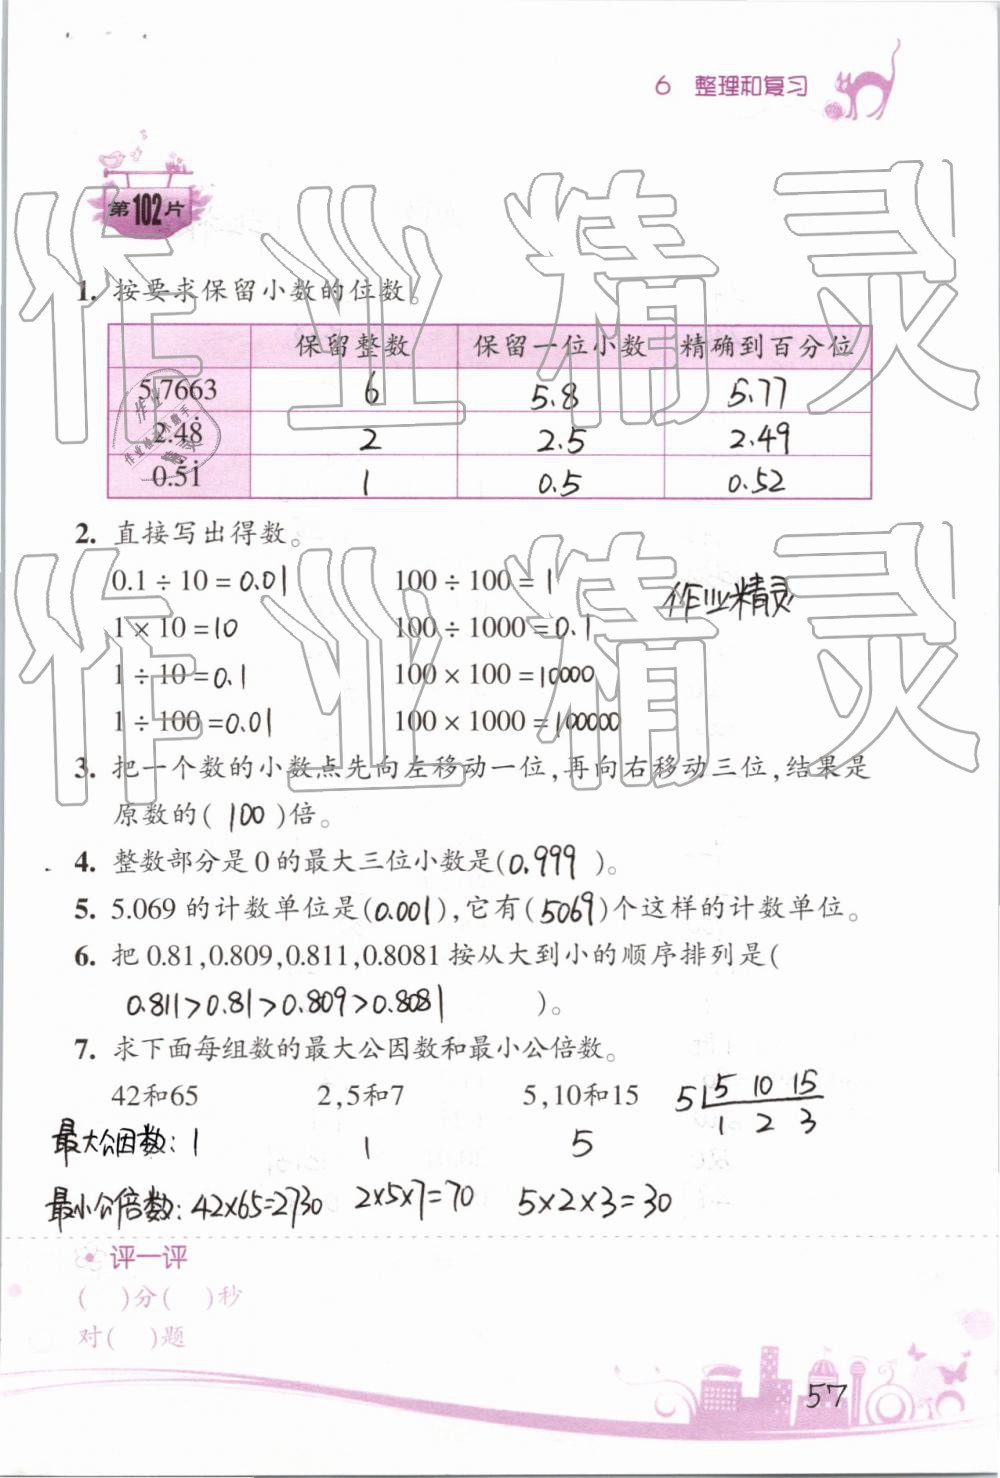 6 整理和复习
第102片
1. 按要求保留小数的位数。
保留整数 保留一位小数 精确到百分位
5.7663 6 5.8 5.77
2.48̇ 2 2.5 2.49
0.5i̇ 1 0.5 0.52
2. 直接写出得数。
0.1÷10=0.01 100÷100=1
作业精灵
1×10=10 100÷1000=0.1
1÷10=0.1 100×100=10000
1÷100=0.01 100×1000=100000
3. 把一个数的小数点先向左移动一位,再向右移动三位,结果是
原数的(100)倍。
4. 整数部分是0的最大三位小数是(0.999)。
5. 5.069的计数单位是(0.001),它有(5069)个这样的计数单位。
6. 把0.81,0.809,0.811,0.8081按从大到小的顺序排列是(
0.811>0.81>0.809>0.8081 )。
7. 求下面每组数的最大公因数和最小公倍数。
42和65 2,5和7 5,10和15 5 5 10 15
1 2 3
最大公因数: 1 1 5
最小公倍数: 42×65=2730 2×5×7=70 5×2×3=30
评一评
( )分( )秒
对( )题
57
作业精灵
作业精灵